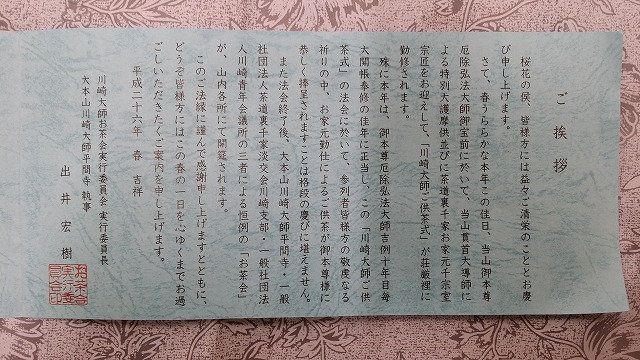 ご挨拶
桜花の侯、皆様方には益々ご清栄のこととお慶
び申し上げます。
さて、春うららかな本年この佳日、当山御本尊
厄除弘法大師御宝前に於いて、当山貫首大導師に
よる特別大護摩供並びに茶道裏千家お家元千宗室
宗匠をお迎えして、「川崎大師ご供茶式」が荘厳裡に
勤修されます。
殊に本年は、御本尊厄除弘法大師吉例十年目毎
大開帳奉修の佳年に正当し、この「川崎大師ご供
茶式」の法会に於いて、参列者皆様方の敬虔なる
祈りの中、お家元勤仕によるご供茶が御本尊様に
恭しく捧呈されますことは格段の慶びに堪えません。
また法会終了後、大本山川崎大師平間寺・一般
社団法人茶道裏千家淡交会川崎支部・一般社団法
人川崎青年会議所の三者による恒例の「お茶会」
が、山内各所にて開筵されます。
このご法縁に謹んで感謝申し上げますとともに、
どうぞ皆様方にはこの春の一日を心ゆくまでお過
ごしいただきたくご案内を申し上げます。
平成二十六年 春 吉祥
川崎大師お茶会実行委員会 実行委員長
大本山川崎大師平間寺 執事
出井宏樹